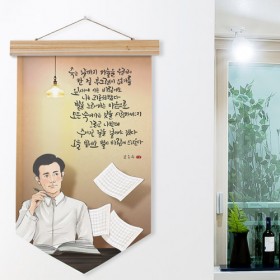 죽는 날까지 하늘을 우러러
한 점 부끄럼이 없기를
잎새에 이는 바람에도
나는 괴로워했다
별을 노래하는 마음으로
모든 죽어가는 것을 사랑해야지
그리고 나한테
주어진 길을 걸어가야겠다
오늘 밤에도 별이 바람에 스치운다
윤동주